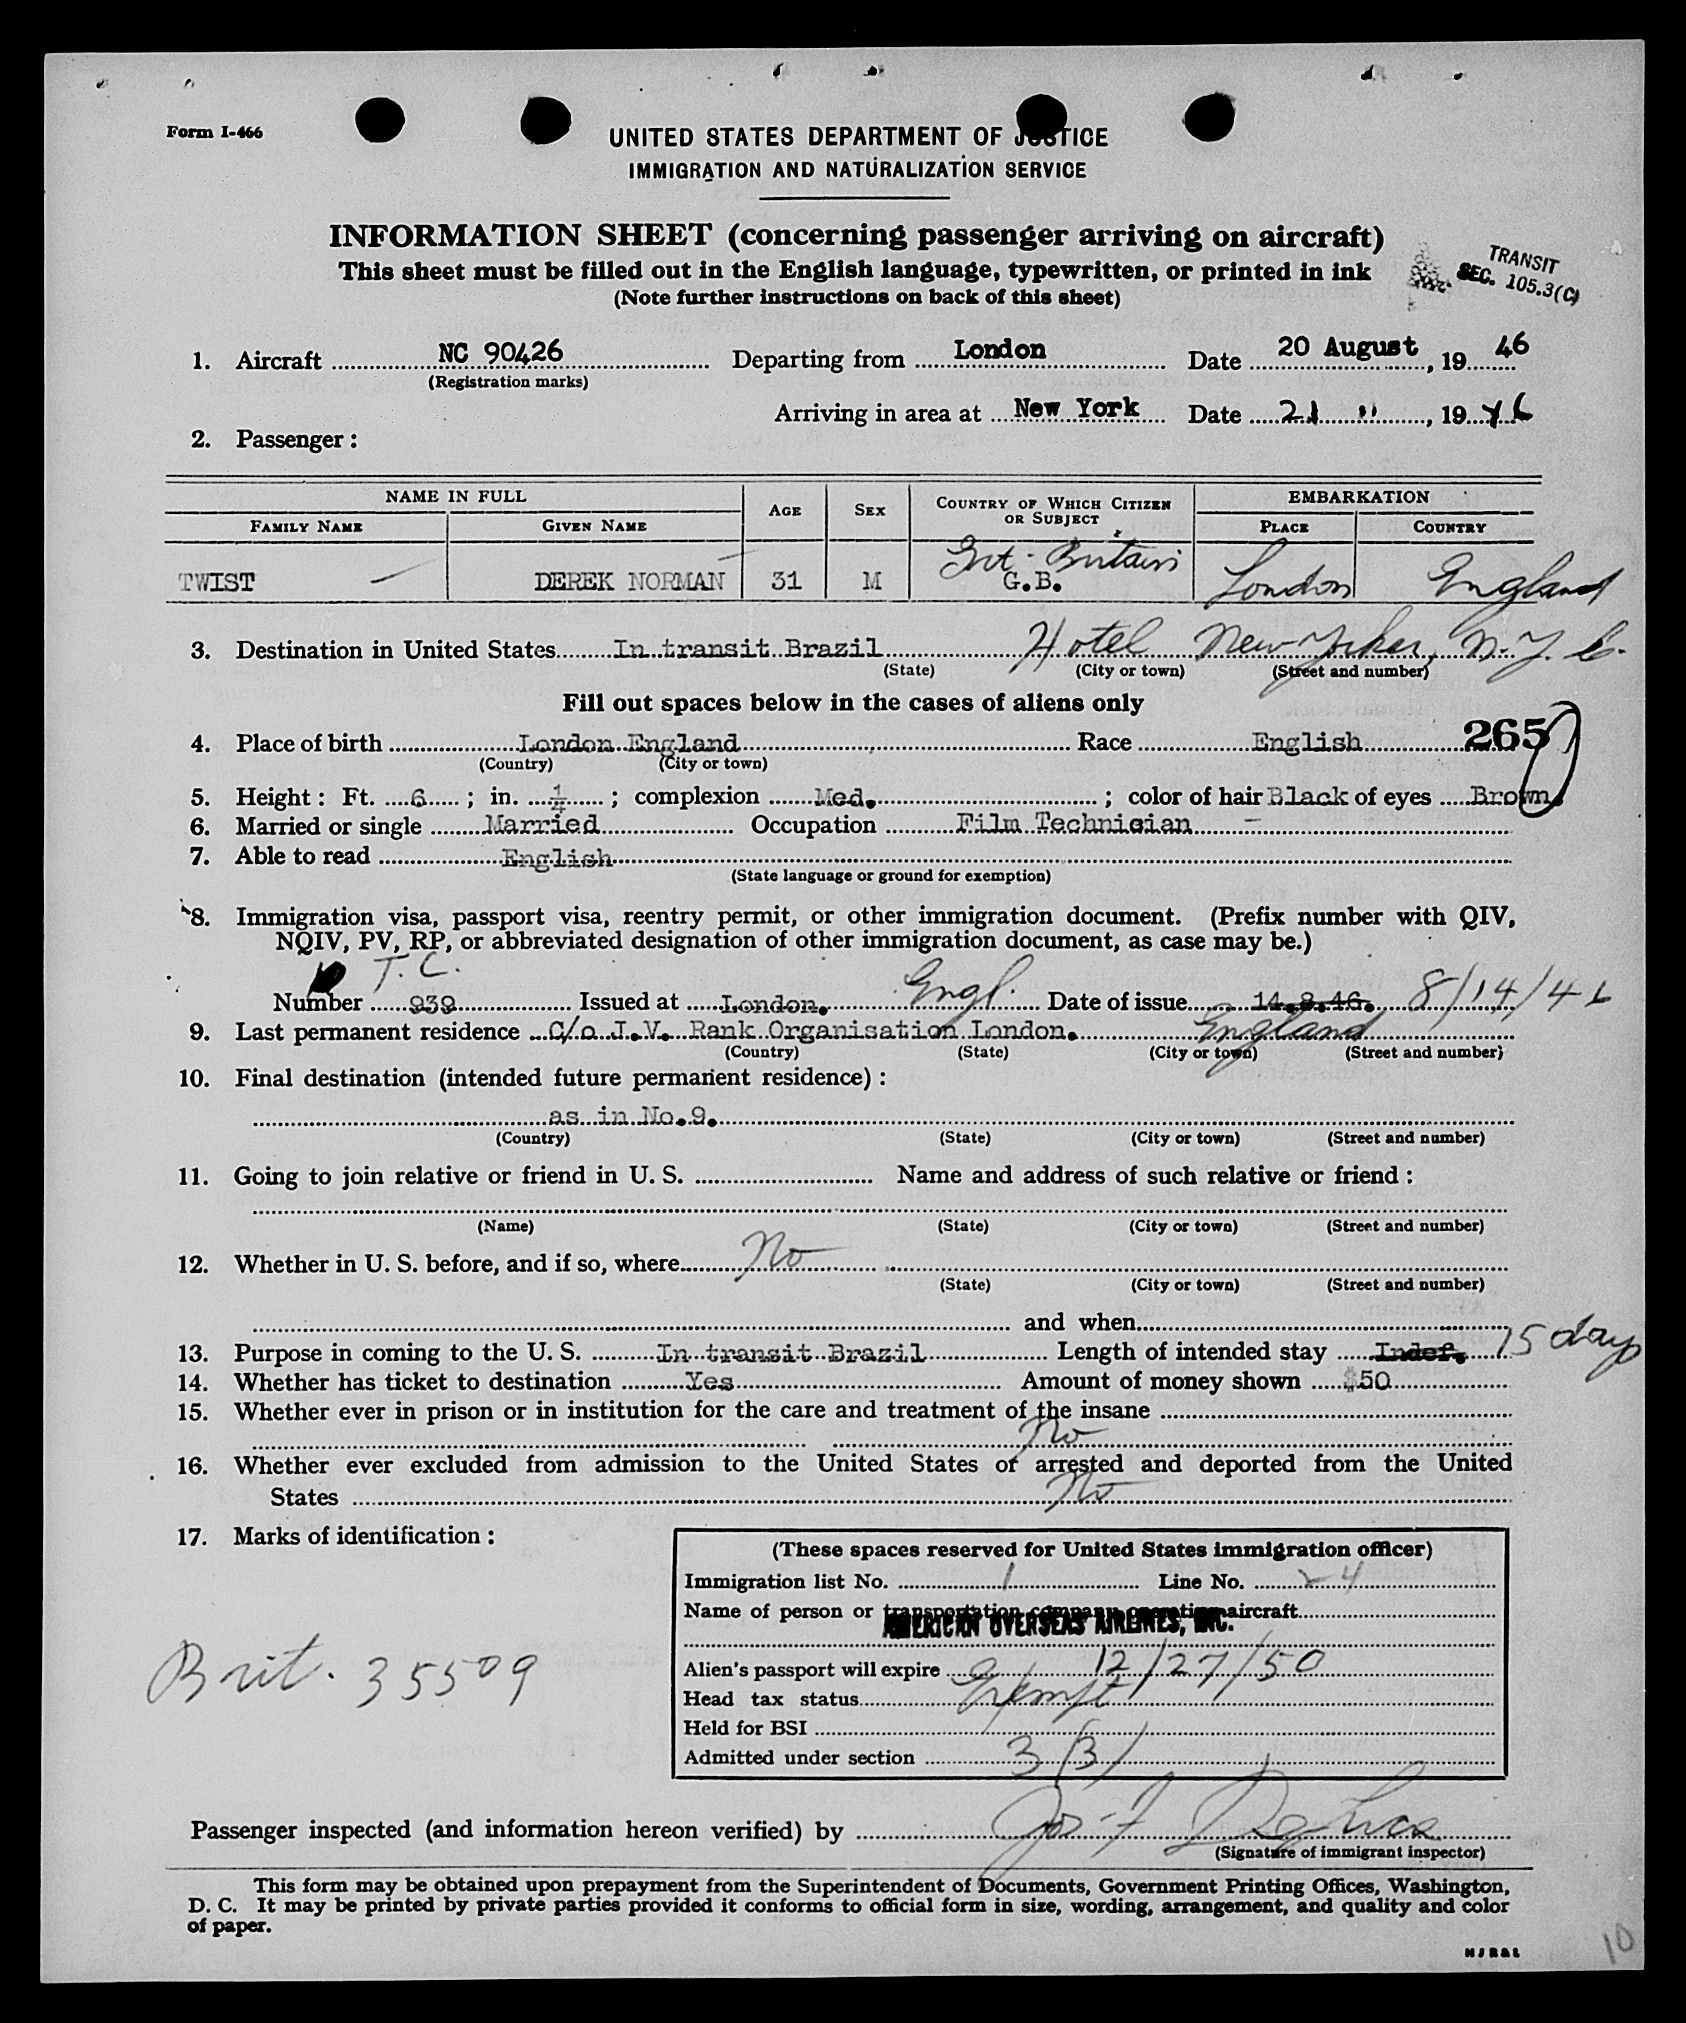 Form I-466
UNITED STATES DEPARTMENT OF JUSTICE
IMMIGRATION AND NATURALIZATION SERVICE
INFORMATION SHEET (concerning passenger arriving on aircraft)
This sheet must be filled out in the English language, typewritten, or printed in ink
(Note further instructions on back of this sheet)
TRANSIT
SEC. 105.3(C)
1. Aircraft NC 90426 Departing from London Date 20 August, 1946
(Registration marks)
Arriving in area at New York Date 21 ", 1946
2. Passenger:
NAME IN FULL AGE SEX COUNTRY OF WHICH CITIZEN OR SUBJECT EMBARKATION
FAMILY NAME GIVEN NAME PLACE COUNTRY
Grt. Britain
TWIST DEREK NORMAN 31 M G.B. London England
3. Destination in United States In transit Brazil Hotel New Yorker, N.Y.C.
(State) (City or town) (Street and number)
Fill out spaces below in the cases of aliens only
265
4. Place of birth London England Race English
(Country) (City or town)
5. Height: Ft. 6; in. 1/4; complexion Med.; color of hair Black of eyes Brown.
6. Married or single Married Occupation Film Technician
7. Able to read English
(State language or ground for exemption)
8. Immigration visa, passport visa, reentry permit, or other immigration document. (Prefix number with QIV,
NQIV, PV, RP, or abbreviated designation of other immigration document, as case may be.)
T.C.
Number 939 Issued at London. Engl. Date of issue 14.8.46. 8/14/46
9. Last permanent residence C/o J.V. Rank Organisation London. England
(Country) (State) (City or town) (Street and number)
10. Final destination (intended future permanent residence):
as in No.9.
(Country) (State) (City or town) (Street and number)
11. Going to join relative or friend in U. S. Name and address of such relative or friend:
(Name) (State) (City or town) (Street and number)
12. Whether in U. S. before, and if so, where No
(State) (City or town) (Street and number)
and when
13. Purpose in coming to the U. S. In transit Brazil Length of intended stay Indef. 15 days
14. Whether has ticket to destination Yes Amount of money shown $50
15. Whether ever in prison or in institution for the care and treatment of the insane
No
16. Whether ever excluded from admission to the United States or arrested and deported from the United
States No
17. Marks of identification:
Brit. 35509
(These spaces reserved for United States immigration officer)
Immigration list No. 1 Line No. 4
Name of person or transportation company operating aircraft
AMERICAN OVERSEAS AIRLINES, INC.
Alien's passport will expire 12/27/50
Head tax status Exempt
Held for BSI
Admitted under section 3(3)
Passenger inspected (and information hereon verified) by
(Signature of immigrant inspector)
This form may be obtained upon prepayment from the Superintendent of Documents, Government Printing Offices, Washington,
D. C. It may be printed by private parties provided it conforms to official form in size, wording, arrangement, and quality and color
of paper.
10